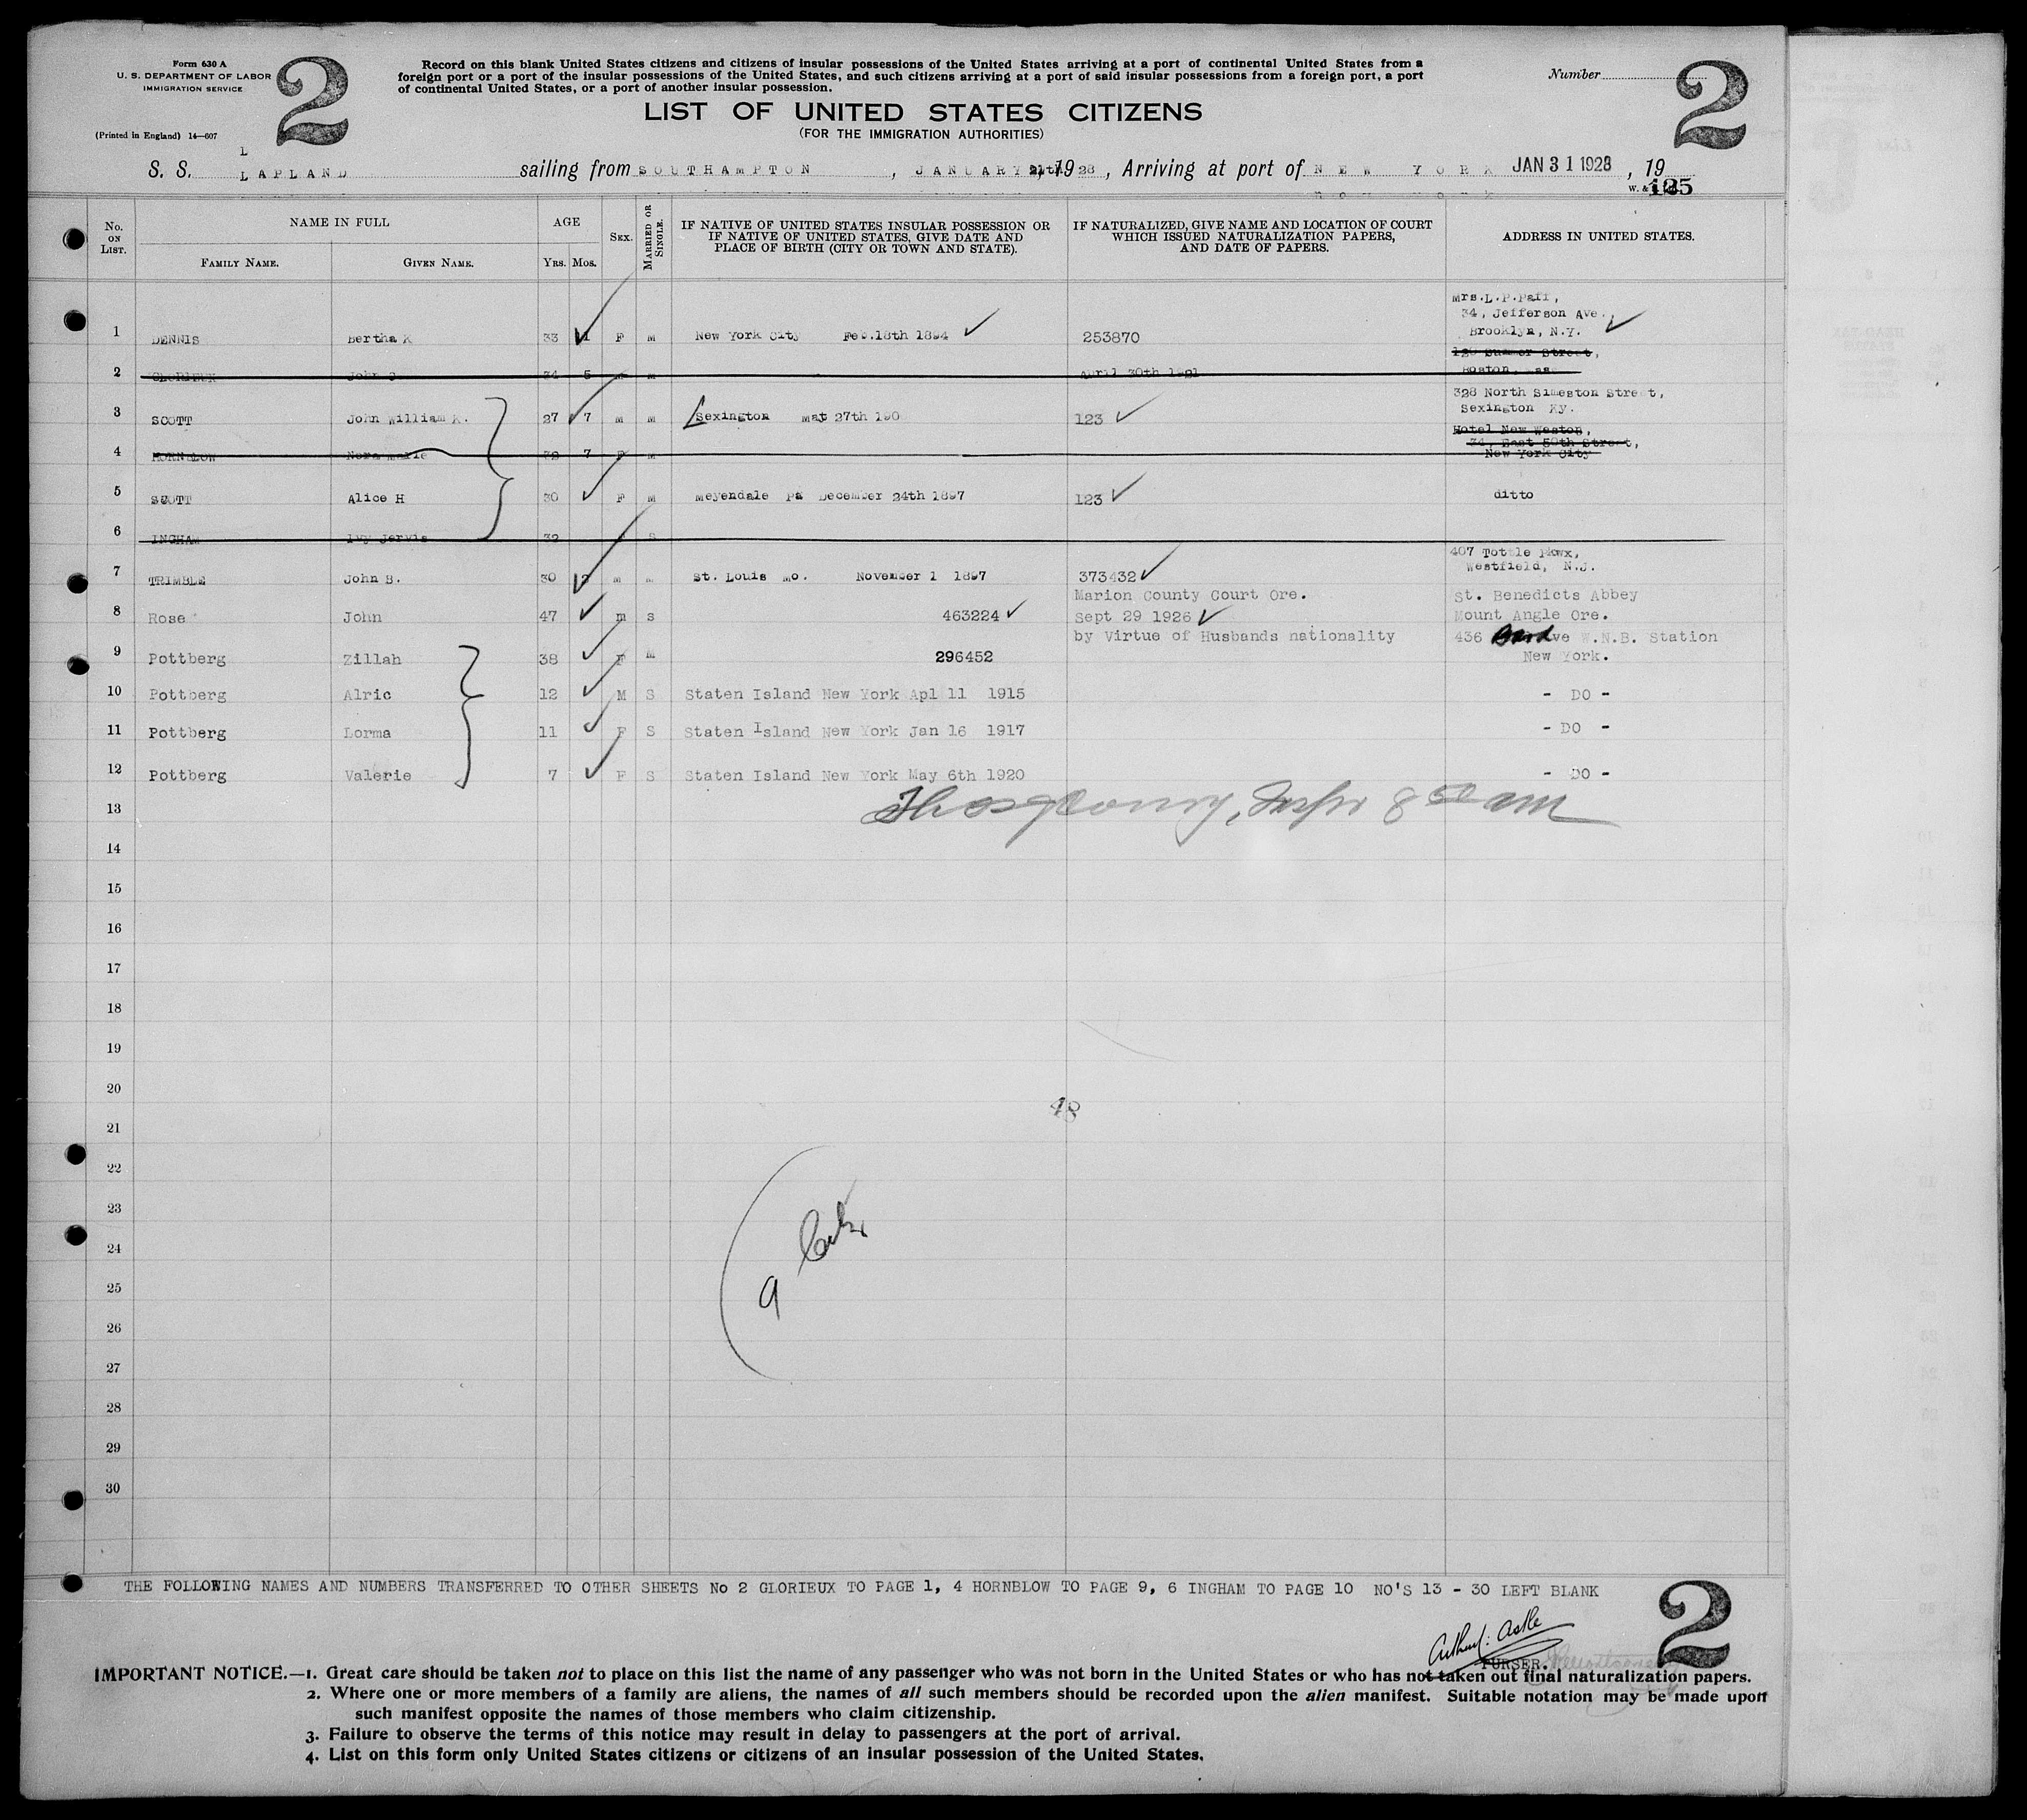 Form 630 A
U. S. DEPARTMENT OF LABOR
IMMIGRATION SERVICE
(Printed in England) 14—607
2
Record on this blank United States citizens and citizens of insular possessions of the United States arriving at a port of continental United States from a
foreign port or a port of the insular possessions of the United States, and such citizens arriving at a port of said insular possessions from a foreign port, a port
of continental United States, or a port of another insular possession.
Number
2
LIST OF UNITED STATES CITIZENS
(FOR THE IMMIGRATION AUTHORITIES)
L
S. S. LAPLAND sailing from SOUTHAMPTON, JANUARY 21th, 1928, Arriving at port of NEW YORK JAN 31 1928, 19
W. & 125
No. ON LIST. NAME IN FULL AGE SEX. MARRIED OR SINGLE. IF NATIVE OF UNITED STATES INSULAR POSSESSION OR IF NATIVE OF UNITED STATES, GIVE DATE AND PLACE OF BIRTH (CITY OR TOWN AND STATE). IF NATURALIZED, GIVE NAME AND LOCATION OF COURT WHICH ISSUED NATURALIZATION PAPERS, AND DATE OF PAPERS. ADDRESS IN UNITED STATES.
FAMILY NAME. GIVEN NAME. YRS. MOS.
Mrs.L.P.Paff,
34, Jefferson Ave.,
1 DENNIS Bertha K 33 11 F M New York City Feb.18th 1894 253870 Brooklyn, N.Y.
Sumner Street,
2 GLORIEUX John 34 5 M April 30th 1921 Boston,
328 North Simeston Street,
3 SCOTT John William K. 27 7 M M Lsexington mat 27th 190 123 Sexington Ky.
Hotel New Weston,
34, East 50th Street,
4 HORNBLOW Nora Marie 32 7 F M New York City
5 SCOTT Alice H 30 F M Meyendale Pa December 24th 1897 123 ditto
6 INGHAM Ivy Jervis 32 S
407 Tottle Pkwx,
7 TRIMBLE John S. 30 2 M M St. Louis Mo. November 1 1897 373432 Westfield, N.J.
Marion County Court Ore. St. Benedicts Abbey
8 Rose John 47 m S 463224 Sept 29 1926 Mount Angle Ore.
by Virtue of Husbands nationality 436 ve W.N.B. Station
9 Pottberg Zillah 38 F M 296452 New York.
10 Pottberg Alric 12 M S Staten Island New York Apl 11 1915 - DO -
11 Pottberg Lorma 11 F S Staten Island New York Jan 16 1917 - DO -
12 Pottberg Valerie 7 F S Staten Island New York May 6th 1920 - DO -
13
14
15
16
17
18
19
20
48
21
22
23
24
25 9
26
27
28
29
30
THE FOLLOWING NAMES AND NUMBERS TRANSFERRED TO OTHER SHEETS No 2 GLORIEUX TO PAGE 1, 4 HORNBLOW TO PAGE 9, 6 INGHAM TO PAGE 10 NO'S 13 - 30 LEFT BLANK
2
Arthur: Astle
PURSER.
IMPORTANT NOTICE.—1. Great care should be taken not to place on this list the name of any passenger who was not born in the United States or who has not taken out final naturalization papers.
2. Where one or more members of a family are aliens, the names of all such members should be recorded upon the alien manifest. Suitable notation may be made upon
such manifest opposite the names of those members who claim citizenship.
3. Failure to observe the terms of this notice may result in delay to passengers at the port of arrival.
4. List on this form only United States citizens or citizens of an insular possession of the United States.